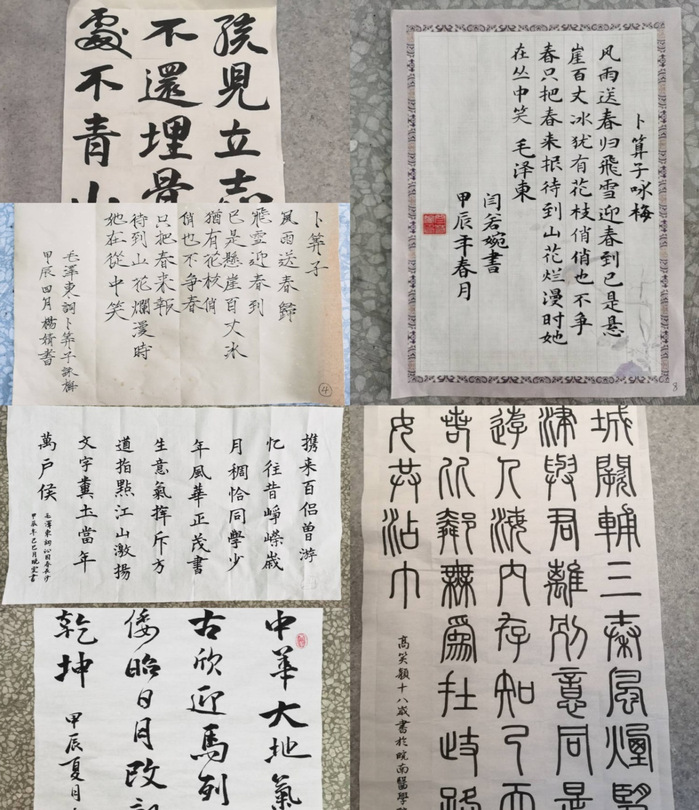 孩見立志
不還埋骨
處不青山
卜算子咏梅
风雨送春归飛雪迎春到已是悬
崖百丈冰犹有花枝俏俏也不争
春只把春来报待到山花烂漫时她
在丛中笑 毛泽東
闫若婉書
甲辰年春月
8
卜算子
風雨送春歸
飛雪迎春到
已是懸崖百丈冰
猶有花枝俏
俏也不争春
只把春来報
待到山花爛漫時
她在從中笑
毛澤東詞卜算子詠梅
甲辰四月楊婧書
④
携来百侣曾游
忆往昔峥嵘歲
月稠恰同學少
年風華正茂書
生意氣挥斥方
道指點江山激揚
文字糞土當年
萬户侯
毛澤東詞沁园春長沙
甲辰年己巳月晚宜書
城闕輔三秦風煙望
津與君離別意同是
遊人海内存知己天
若比鄰無爲在歧路
女共沾巾
高笑顏十八歲書於皖南醫學
中華大地氣
古欣迎馬列
倭昭日月改
乾坤
甲辰夏月